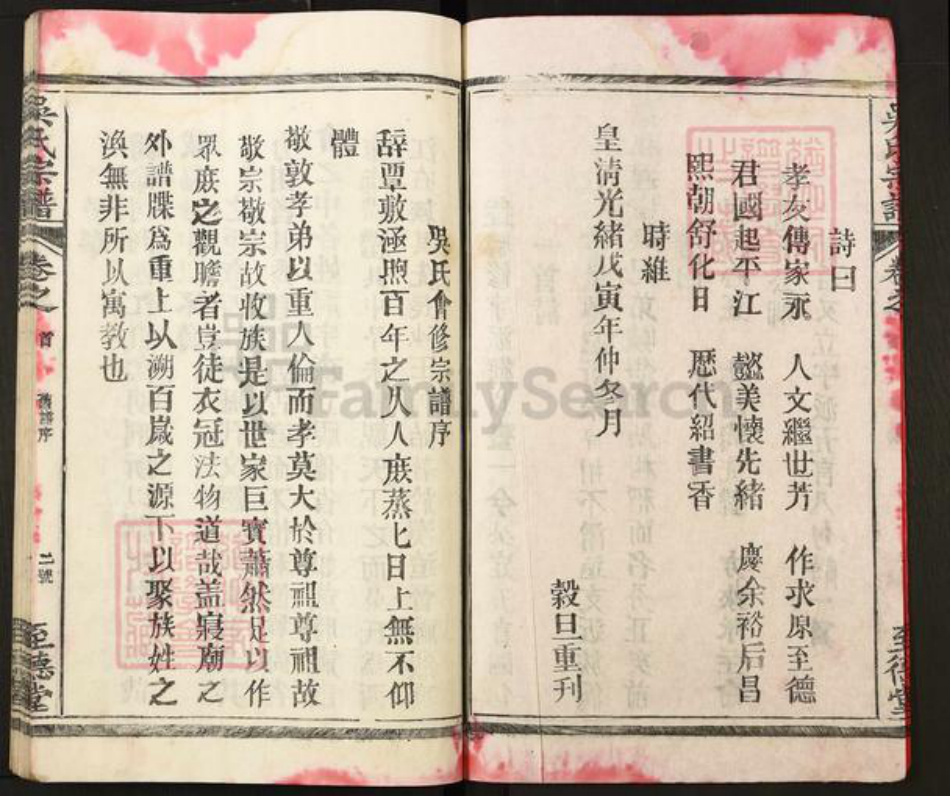 詩曰
孝友傳家永　人文繼世芳　作求原至德
君國起平江　懿美懷先緒　慶余裕后昌
熙朝舒化日　歷代紹書香
時維
皇清光緒戊寅年仲冬月
穀旦重刊
吳氏會修宗譜序
辭覃敷涵煦百年之久人庶蒸匕日上無不仰
體
敬敦孝弟以重人倫而孝莫大於尊祖尊祖故
敬宗敬宗故收族是以世家巨寶蕭然足以作
眾庶之觀瞻者豈徒衣冠法物道哉盖寢廟之
外譜牒爲重上以溯百嵗之源下以聚族姓之
渙無非所以寓教也
吳氏宗譜
卷之
首
舊譜序
二號
至德堂
FamilySearch